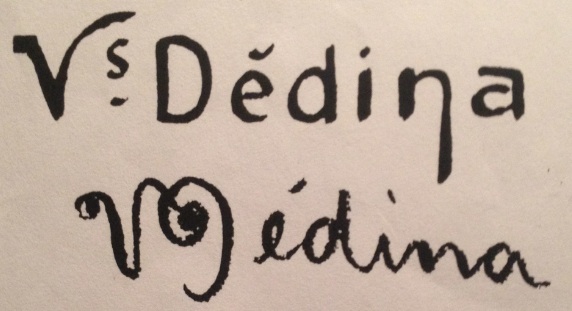 Vs Dĕdina
VDédina